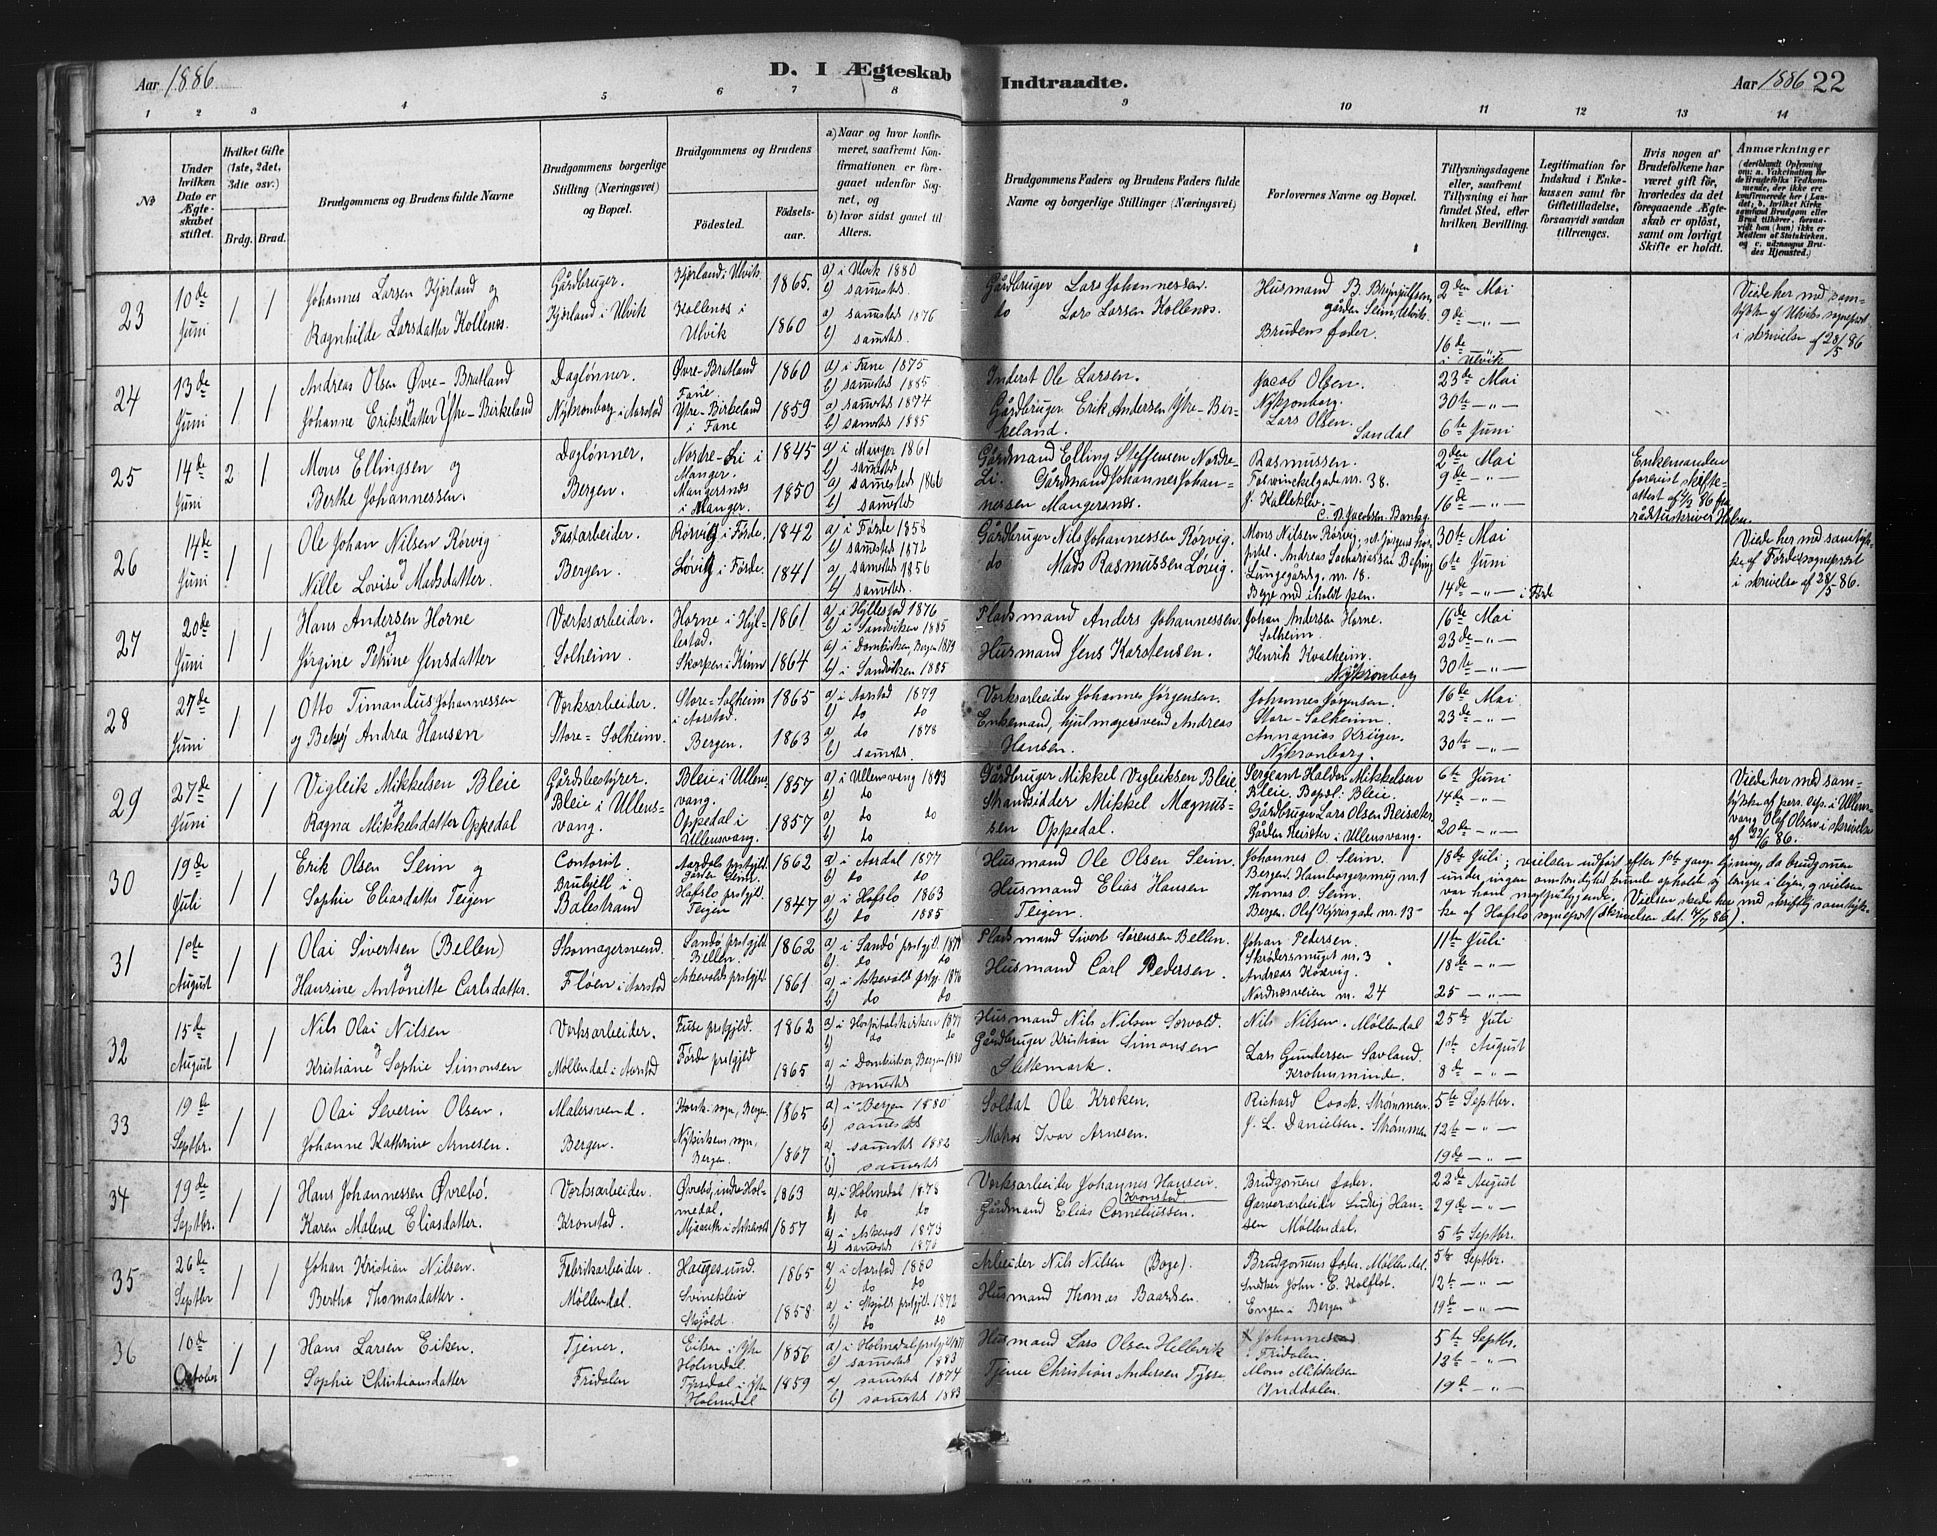 Aar 1886
D. I Ægteskab Indtraadte.
Aar 1886 22
1 2 3 4 5 6 7 8 9 10 11 12 13 14
No
Under hvilken Dato er Ægteskabet stiftet.
Hvilket Gifte (1ste, 2det, 3dte osv.)
Brdg. Brud.
Brudgommens og Brudens fulde Navne
Brudgommens borgerlige Stilling (Næringsvei) og Bopæl.
Brudgommens og Brudens
Födested. Födsels-aar.
a) Naar og hvor konfirmeret, saafremt Konfirmationen er foregaaet udenfor Sognet, og
b) hvor sidst gaaet til Alters.
Brudgommens Faders og Brudens Faders fulde Navne og borgerlige Stillinger (Næringsvei)
Forlovernes Navne og Bopæl.
Tillysningsdagene eller, saafremt Tillysning ei har fundet Sted, efter hvilken Bevilling.
Legitimation for Indskud i Enkekassen samt for Giftetilladelse, forsaavidt saadan tiltrænges.
Hvis nogen af Brudefolkene har været gift för, hvorledes da det foregaaende Ægteskab er oplöst, samt om lovligt Skifte er holdt.
Anmærkninger
23 10de Juni 1 1
Johannes Larsen Kjørland og
Ragnhilde Larsdatter Kollenæs.
Gårdbruger.
Kjørland i Ulvik
Kjørland i Ulvik 1865.
Kollenæs i Ulvik 1860
a) i Ulvik 1880
b) sammesteds
a) sammesteds 1876
b) sammesteds.
Gårdbruger Lars Johannessen.
do Lars Larsen Kollenæs.
Husmand B. Brynjulfsen
gården Seim, Ulvik.
Brudens fader.
2den Mai
9de -"-
16de -"-
i Ulvik
Viede her med samtykke af Ulviks sogneprest i skrivelse af 28/5 86
24 13de Juni 1 1
Andreas Olsen Øvre-Bratland
og
Johanne Eriksdatter Ytre-Birkeland
Daglønner.
Nykronborg i Aarstad
Øvre-Bratland Fane 1860
Ytre-Birkeland i Fane 1859
a) i Fane 1875
b) sammesteds 1885
a) sammesteds 1874
b) sammesteds 1885
Inderst Ole Larsen.
Gårdbruger Erik Andersen Ytre-Birkeland.
Jacob Olsen.
Nykronborg.
Lars Olsen.
Sandal
23de Mai
30te -"-
6te Juni
25 14de Juni 2 1
Mons Ellingsen og
Berthe Johannessen.
Daglønner.
Bergen.
Nordre-Li i Manger. 1845
Mangersnæs i Manger. 1850
a) i Manger 1861
b) sammesteds
a) sammesteds 1866
b) sammesteds
Gårdmand Elling Steffensen Nordre-Li.
Gårdmand Johannes Johannessen Mangersnæs.
Rasmussen.
nr. 38.
J. Kalleklev.
C. B. Jacobsen.
2den Mai
9de -"-
16de -"-
Enkemanden forevist skifteattest af 4/2 86 fra
26 14de Juni 1 1
Ole Johan Nilsen Rörvig
og
Nille Lovise Madsdatter.
Fastarbeider.
Bergen.
Rörvig i Förde. 1842
Lövik i Förde. 1841
a) i Förde 1858
b) sammesteds 1872
a) sammesteds 1856
b) sammesteds.
Gårdbruger Nils Johannessen Rörvig.
do Mads Rasmussen Lövig.
Mons Nilsen Rörvig, st. Jørgens hospital.
Andreas Sachariassen
Lungegårdsg. nr. 18.
Begge med iholdt pen.
30te Mai
6te Juni
14de -"- i Förde
Viede her med samtykke af Förde sogneprest i skrivelse af 28/5 86.
27 20de Juni 1 1
Hans Andersen Horne
og
Jørgine Petrine Jensdatter
Værksarbeider.
Solheim.
Horne i Hyllestad. 1861
Skorpen i Kinn 1864
a) i Hyllestad 1876
b) i Sandviken 1885
a) i Domkirken, Bergen 1879
b) i Sandviken 1885
Pladsmand Anders Johannessen.
Husmand Jens Karstensen.
Johan Andersen Horne.
Solheim.
Henrik Kvalheim.
Nykronborg
16de Mai
23de -"-
30te -"-
28 27de Juni 1 1
Otto Timandus Johannessen
og Betsy Andrea Hansen
Værksarbeider.
Store-Solheim.
Store-Solheim i Aarstad. 1865
Bergen. 1863
a) i Aarstad 1879
b) do do
a) do 1878
b) sammesteds
Værksarbeider Johannes Jørgensen.
Enkemand, hjulmagersvend Andreas Hansen.
Johannes Jørgensen.
Store-Solheim.
Annanias Krüger.
Nykronborg.
16de Mai
23de -"-
30te -"-
29 27de Juni 1 1
Vigleik Mikkelsen Bleie
og
Ragna Mikkelsdatter Oppedal
Gårdsbestyrer.
Bleie i Ullensvang.
Bleie i Ullensvang. 1857
Oppedal i Ullensvang. 1857
a) i Ullensvang 1873
b) do
a) do do
b) do
Gårdbruger Mikkel Vigleiksen Bleie.
Strandsidder Mikkel Magnussen Oppedal.
Sergeant Haldor Mikkelsen
Bleie. Bopæl: Bleie.
Gårdbruger Lars Olsen Reisæter
Gården Reisæter i Ullensvang.
6te Juni
14de -"-
20de -"-
Viede her med samtykke af pers. cap. i Ullensvang Olaf Olsen i skrivelse af 22/6 86.
30 19de Juli 1 1
Erik Olsen Seim og
Sophie Eliasdatter Teigen
Contorist.
i Balestrand
Aardals prstgjld. Seim 1862
Hafslo prstgjld. Teigen 1847
a) i Aardal 1877
b) do do
a) i Hafslo 1863
b) do 1885
Husmand Ole Olsen Seim.
Husmand Elias Hansen Teigen.
Johannes O. Seim.
Bergen. Hamborgersmug nr. 1
Thomas O. Seim.
Bergen. Olaf Kyrresgade nr. 13
18de Juli; vielsen udført efter 1ste gangs lysning, da brudgommen under ingen omstændighed kunde opholde sig længre i byen, og vielsen var hant nødpåliggende. (Vielsen skede her med skriftlig samtykke af Hafslo sogneprest (skrivelsen dat. 4/7 86).
31 1ste August 1 1
Olai Sivertsen (Bellen)
og
Hansine Antonette Carlsdatter.
Skomagersvend.
Fløen i Aarstad
Sandö prstgjld. Bellen. 1862
Askevolds prstgjld. 1861
a) i Sandö prstgjld.
b) do do
a) i Askevold prstgj. 1876
b) do do
Pladsmand Sivert Sörensen Bellen.
Husmand Carl Pedersen.
Johan Pedersen.
Skrødersmuget nr. 3
Andreas
Nordnæsveien nr. 24
11te Juli
18de -"-
25 -"-
32 15de August 1 1
Nils Olai Nilsen
og
Kristiane Sophie Simonsen
Værksarbeider.
Møllendal i Aarstad
Fuse prstgjld. 1862
Förde prstgjeld 1865
a) i Hospitalskirken
b) do do
a) i Domkirken, Bergen 1880
b) sammesteds
Husmand Nils Nilsen Sævold.
Gårdbruger Kristian Simonsen Slettemark.
Nils Nilsen. Møllendal
Lars Gundersen Savland.
Krohnsminde.
25de Juli
1ste August
8de -"-
33 19de Septbr. 1 1
Olai Severin Olsen.
Johanne Kathrine Arnesen.
Malersvend.
Bergen.
Korsk.sogn, Bergen 1865
Nykirkens sogn, Bergen. 1867
a) i Bergen 1880
b) sammesteds
a) sammesteds 1882
b) sammesteds
Soldat Ole Kroken.
Matros Ivar Arnesen.
Richard Coock. Strømmen.
J. L. Danielsen. Strømmen
5te Septbr.
12te -"-
19de -"-
34 19de Septbr. 1 1
Hans Johannessen Øvrebö.
Karen Malene Eliasdatter.
Værksarbeider.
Kronstad.
Øvrebö, indre Holmedal. 1863
i Askevold 1857
a) i Holmedal 1878
b) do do
a) i Askevold 1873
b) sammesteds 1876
Værksarbeider Johannes Hansen.
Kronstad
Gårdmand Elias Corneliussen.
Brudgommens fader.
Garverarbeider Ludvig Hansen Møllendal.
22de August
29de -"-
5te Septbr.
35 26de Septbr 1 1
Johan Kristian Nilsen.
Bertha Thomasdatter.
Fabrikarbeider.
Møllendal.
Haugesund. 1865
Svinekleiv Skjold 1858.
a) i Aarstad 1880
b) do do
a) i Skjold prstgjld. 1872
b) do do
Arbeider Nils Nilsen (Boge).
Husmand Thomas Baardsen.
Brudgommens fader. Møllendal.
John E. Kolflot.
Engen i Bergen
5te Septbr.
12te -"-
19de -"-
36 10de October 1 1
Hans Larsen Eiken.
Sophie Christiansdatter
Tjener.
Fridalen
Eiken i Ytre Holmedal 1856
i Ytre Holmedal 1859
a) i Holmedal prstgjld.
b) sammesteds 1883
a) sammesteds 1874
b) sammesteds 1883
Husmand Lars Olsen Hellevik
Tjener Christian Andersen Tysse.
Fridalen.
Mons Mikkelsen
Inddalen.
5te Septbr.
12te -"-
19de -"-